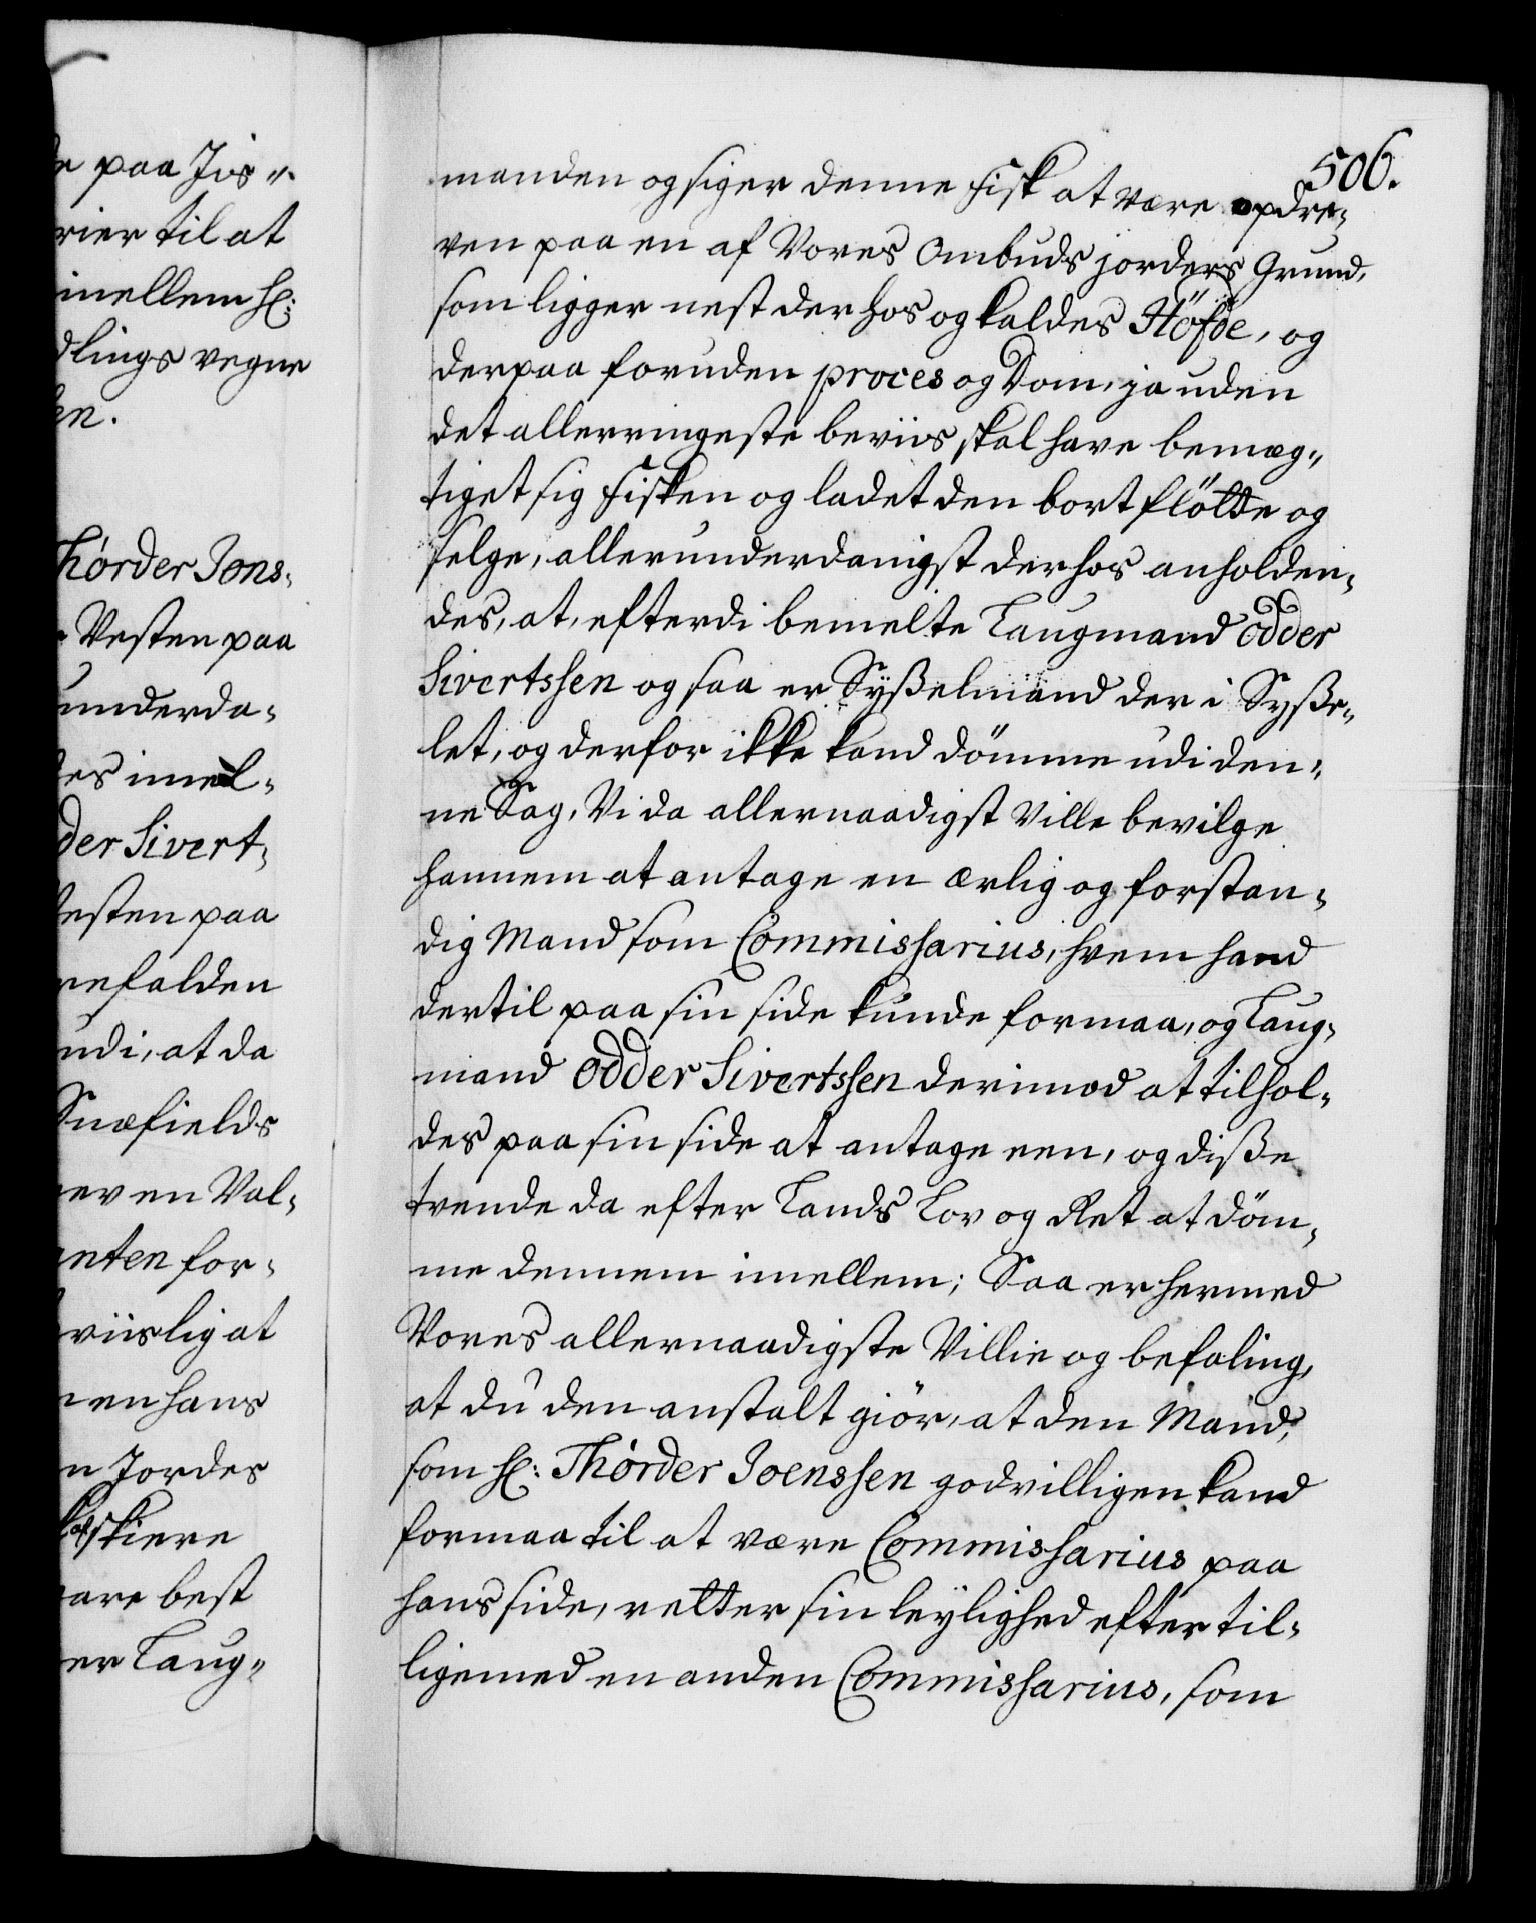 de paa Jis„
rier til at
imellem H:
dlings vegne
ken.
Thórder Jons„
Vesten paa
underda„
des imel„
der Sivert„
Vesten paa
refalden
udi, at da
Snæfields
en Val„
anten for„
viislig at
en hans
n Jordes
skiere
are best
er Laug„
506.
manden og siger denne Fisk at være opdre„
ven paa en af Vores Ombuds jorders Grund,
som ligger nest derhos og kaldes Höfde, og
derpaa foruden proces og Dom, ja uden
det allerringeste beviis skal have bemæg„
tiget sig Fisken og ladet den bort flötte og
selge, allerunderdanigst derhos anholden„
des, at, efterdi bemelte Laugmand Odder
Sivertssen og saa er Sysselmand der i Sysse„
let, og derfor ikke kand dömme udi den„
ne Sag, Vi da allernaadigst Ville bevilge
hannem at antage en ærlig og forstan„
dig Mand som Commissarius, hvem hand
dertil paa sin side kunde formaa, og Laug„
mand Odder Sivertssen derimod at tilhol„
des paa sin side at antage een, og disse
tvende da efter Lands Lov og Ret at döm„
me dennem imellem; Saa er hermed
Vores allernaadigste Villie og befaling,
at du den anstalt giör, at den Mand,
som H: Thórder Joenssen godvilligen kand
formaa til at være Commissarius paa
hans side, retter sin leylighed efter til„
ligemed en anden Commissarius, som